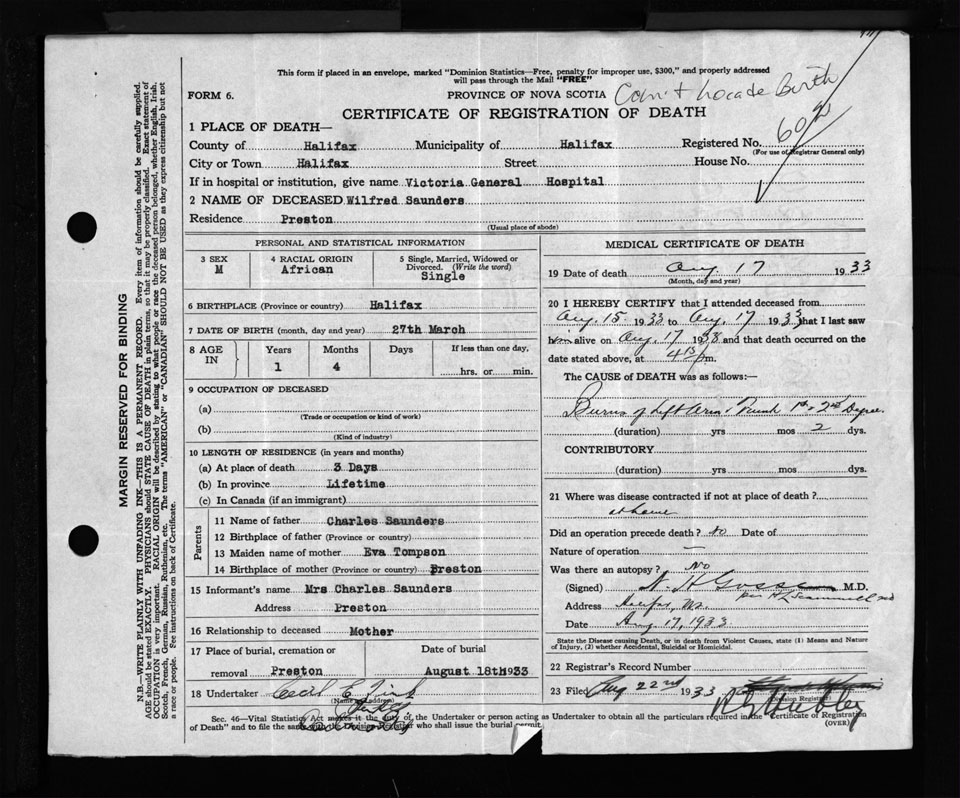 This form if placed in an envelope, marked "Dominion Statistics—Free, penalty for improper use, $300," and properly addressed
will pass through the Mail "FREE"
FORM 6.
PROVINCE OF NOVA SCOTIA
Can't Locate Birth
CERTIFICATE OF REGISTRATION OF DEATH
1 PLACE OF DEATH—
County of Halifax Municipality of Halifax Registered No.
(For use of Registrar General only)
City or Town Halifax Street House No.
If in hospital or institution, give name Victoria General Hospital
2 NAME OF DECEASED Wilfred Saunders
Residence Preston
(Usual place of abode)
PERSONAL AND STATISTICAL INFORMATION
3 SEX
M
4 RACIAL ORIGIN
African
5 Single, Married, Widowed or
Divorced. (Write the word)
Single
6 BIRTHPLACE (Province or country) Halifax
7 DATE OF BIRTH (month, day and year) 27th March
8 AGE
IN
Years
1
Months
4
Days
If less than one day,
hrs. or min.
9 OCCUPATION OF DECEASED
(a)
(Trade or occupation or kind of work)
(b)
(Kind of industry)
10 LENGTH OF RESIDENCE (in years and months)
(a) At place of death 3 Days
(b) In province Lifetime
(c) In Canada (if an immigrant)
Parents
11 Name of father Charles Saunders
12 Birthplace of father (Province or country)
13 Maiden name of mother Eva Tompson
14 Birthplace of mother (Province or country) Preston
15 Informant's name Mrs Charles Saunders
Address Preston
16 Relationship to deceased Mother
17 Place of burial, cremation or
removal Preston
Date of burial
August 18th 1933
18 Undertaker Cecil E. Zink
(Name and address)
MEDICAL CERTIFICATE OF DEATH
19 Date of death Aug 17 1933
(Month, day and year)
20 I HEREBY CERTIFY that I attended deceased from
Aug. 15 1933 to Aug. 17 1933 that I last saw
him alive on Aug. 17 1933 and that death occurred on the
date stated above, at 4 pm.
The CAUSE of DEATH was as follows:—
Burns of Left Arm & Trunk 1st & 2nd Degree
(duration) yrs mos 2 dys.
CONTRIBUTORY
(duration) yrs mos dys.
21 Where was disease contracted if not at place of death?
at home
Did an operation precede death? No Date of
Nature of operation —
Was there an autopsy? No
(Signed) N. H. Gosse M.D.
Address Halifax, N.S.
Date Aug 17, 1933
State the Disease causing Death, or in death from Violent Causes, state (1) Means and Nature
of Injury, (2) whether Accidental, Suicidal or Homicidal.
22 Registrar's Record Number
23 Filed Aug 22nd 1933
Division Registrar
Sec. 46—Vital Statistics Act makes it the duty of the Undertaker or person acting as Undertaker to obtain all the particulars required in the "Certificate of Registration
of Death" and to file the same with the Division Registrar who shall issue the burial permit.
(OVER)
MARGIN RESERVED FOR BINDING
N.B.—WRITE PLAINLY WITH UNFADING INK—THIS IS A PERMANENT RECORD. Every item of information should be carefully supplied.
AGE should be stated EXACTLY. PHYSICIANS should STATE CAUSE OF DEATH in plain terms, so that it may be properly classified. Exact statement of
OCCUPATION is very important. RACIAL ORIGIN will be described by stating to what people or race the deceased person belonged, whether English, Irish,
Scotch, French, German, Russian, Ruthenian, etc. The terms "AMERICAN" or "CANADIAN" SHOULD NOT BE USED as they express citizenship but not
a race or people. See instructions on back of Certificate.